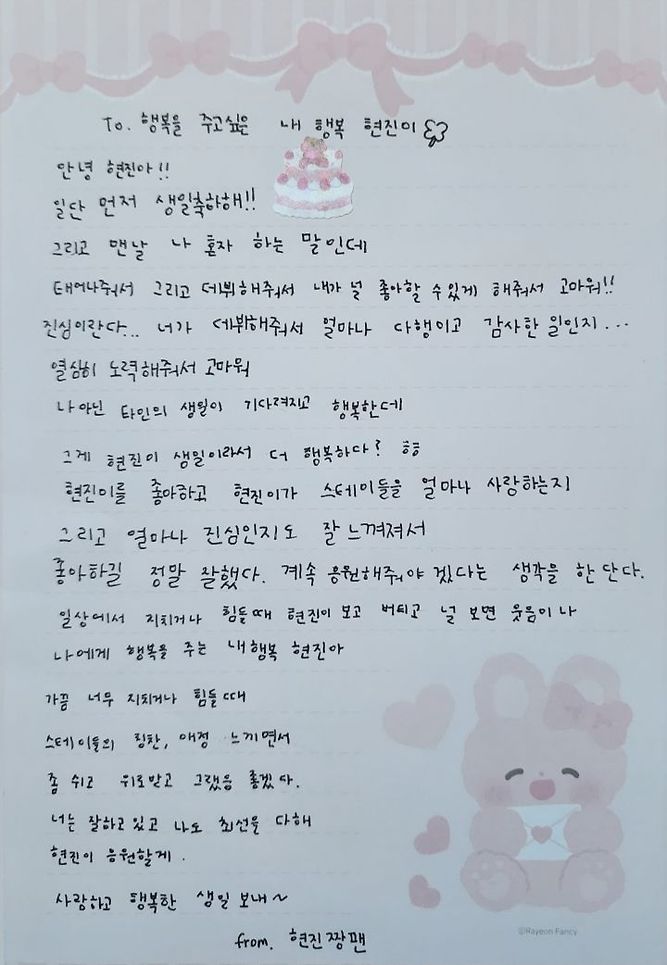 To. 행복을 주고싶은 내 행복 현진이
안녕 현진아!!
일단 먼저 생일축하해!!
그리고 맨날 나 혼자 하는 말인데
태어나줘서 그리고 데뷔해줘서 내가 널 좋아할 수 있게 해줘서 고마워!!
진심이란다... 너가 데뷔해줘서 얼마나 다행이고 감사한 일인지...
열심히 노력해줘서 고마워
나 아닌 타인의 생일이 기다려지고 행복한데
그게 현진이 생일이라서 더 행복하다? ㅎㅎ
현진이를 좋아하고 현진이가 스테이들을 얼마나 사랑하는지
그리고 얼마나 진심인지도 잘 느껴져서
좋아하길 정말 잘했다. 계속 응원해줘야겠다는 생각을 한단다.
일상에서 지치거나 힘들때 현진이 보고 버티고 널 보면 웃음이 나
나에게 행복을 주는 내행복 현진아
가끔 너무 지치거나 힘들때
스테이들의 칭찬, 애정 느끼면서
좀 쉬고 위로받고 그랬음 좋겠다.
너는 잘하고있고 나도 최선을 다해
현진이 응원할게.
사랑하고 행복한 생일 보내~
from. 현진짱팬
©Rayeon Fancy